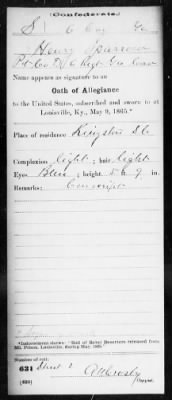 (Confederate.)
S 6 Cav Ga
Henry Sparrow
Pvt Co D, 6 Regt Ga Cav
Name appears as signature to an
Oath of Allegiance
to the United States, subscribed and sworn to at
Louisville, Ky., May 9, 1865.*
Place of residence Kingston
Complexion light; hair light
Eyes Blue; height 5 ft. 9 in.
Remarks: Conscript
*Indorsement shows: "Roll of Rebel Deserters released from Mil. Prison, Louisville, during May, 1865."
Number of roll:
631 sheet 2
(639) Copyist.